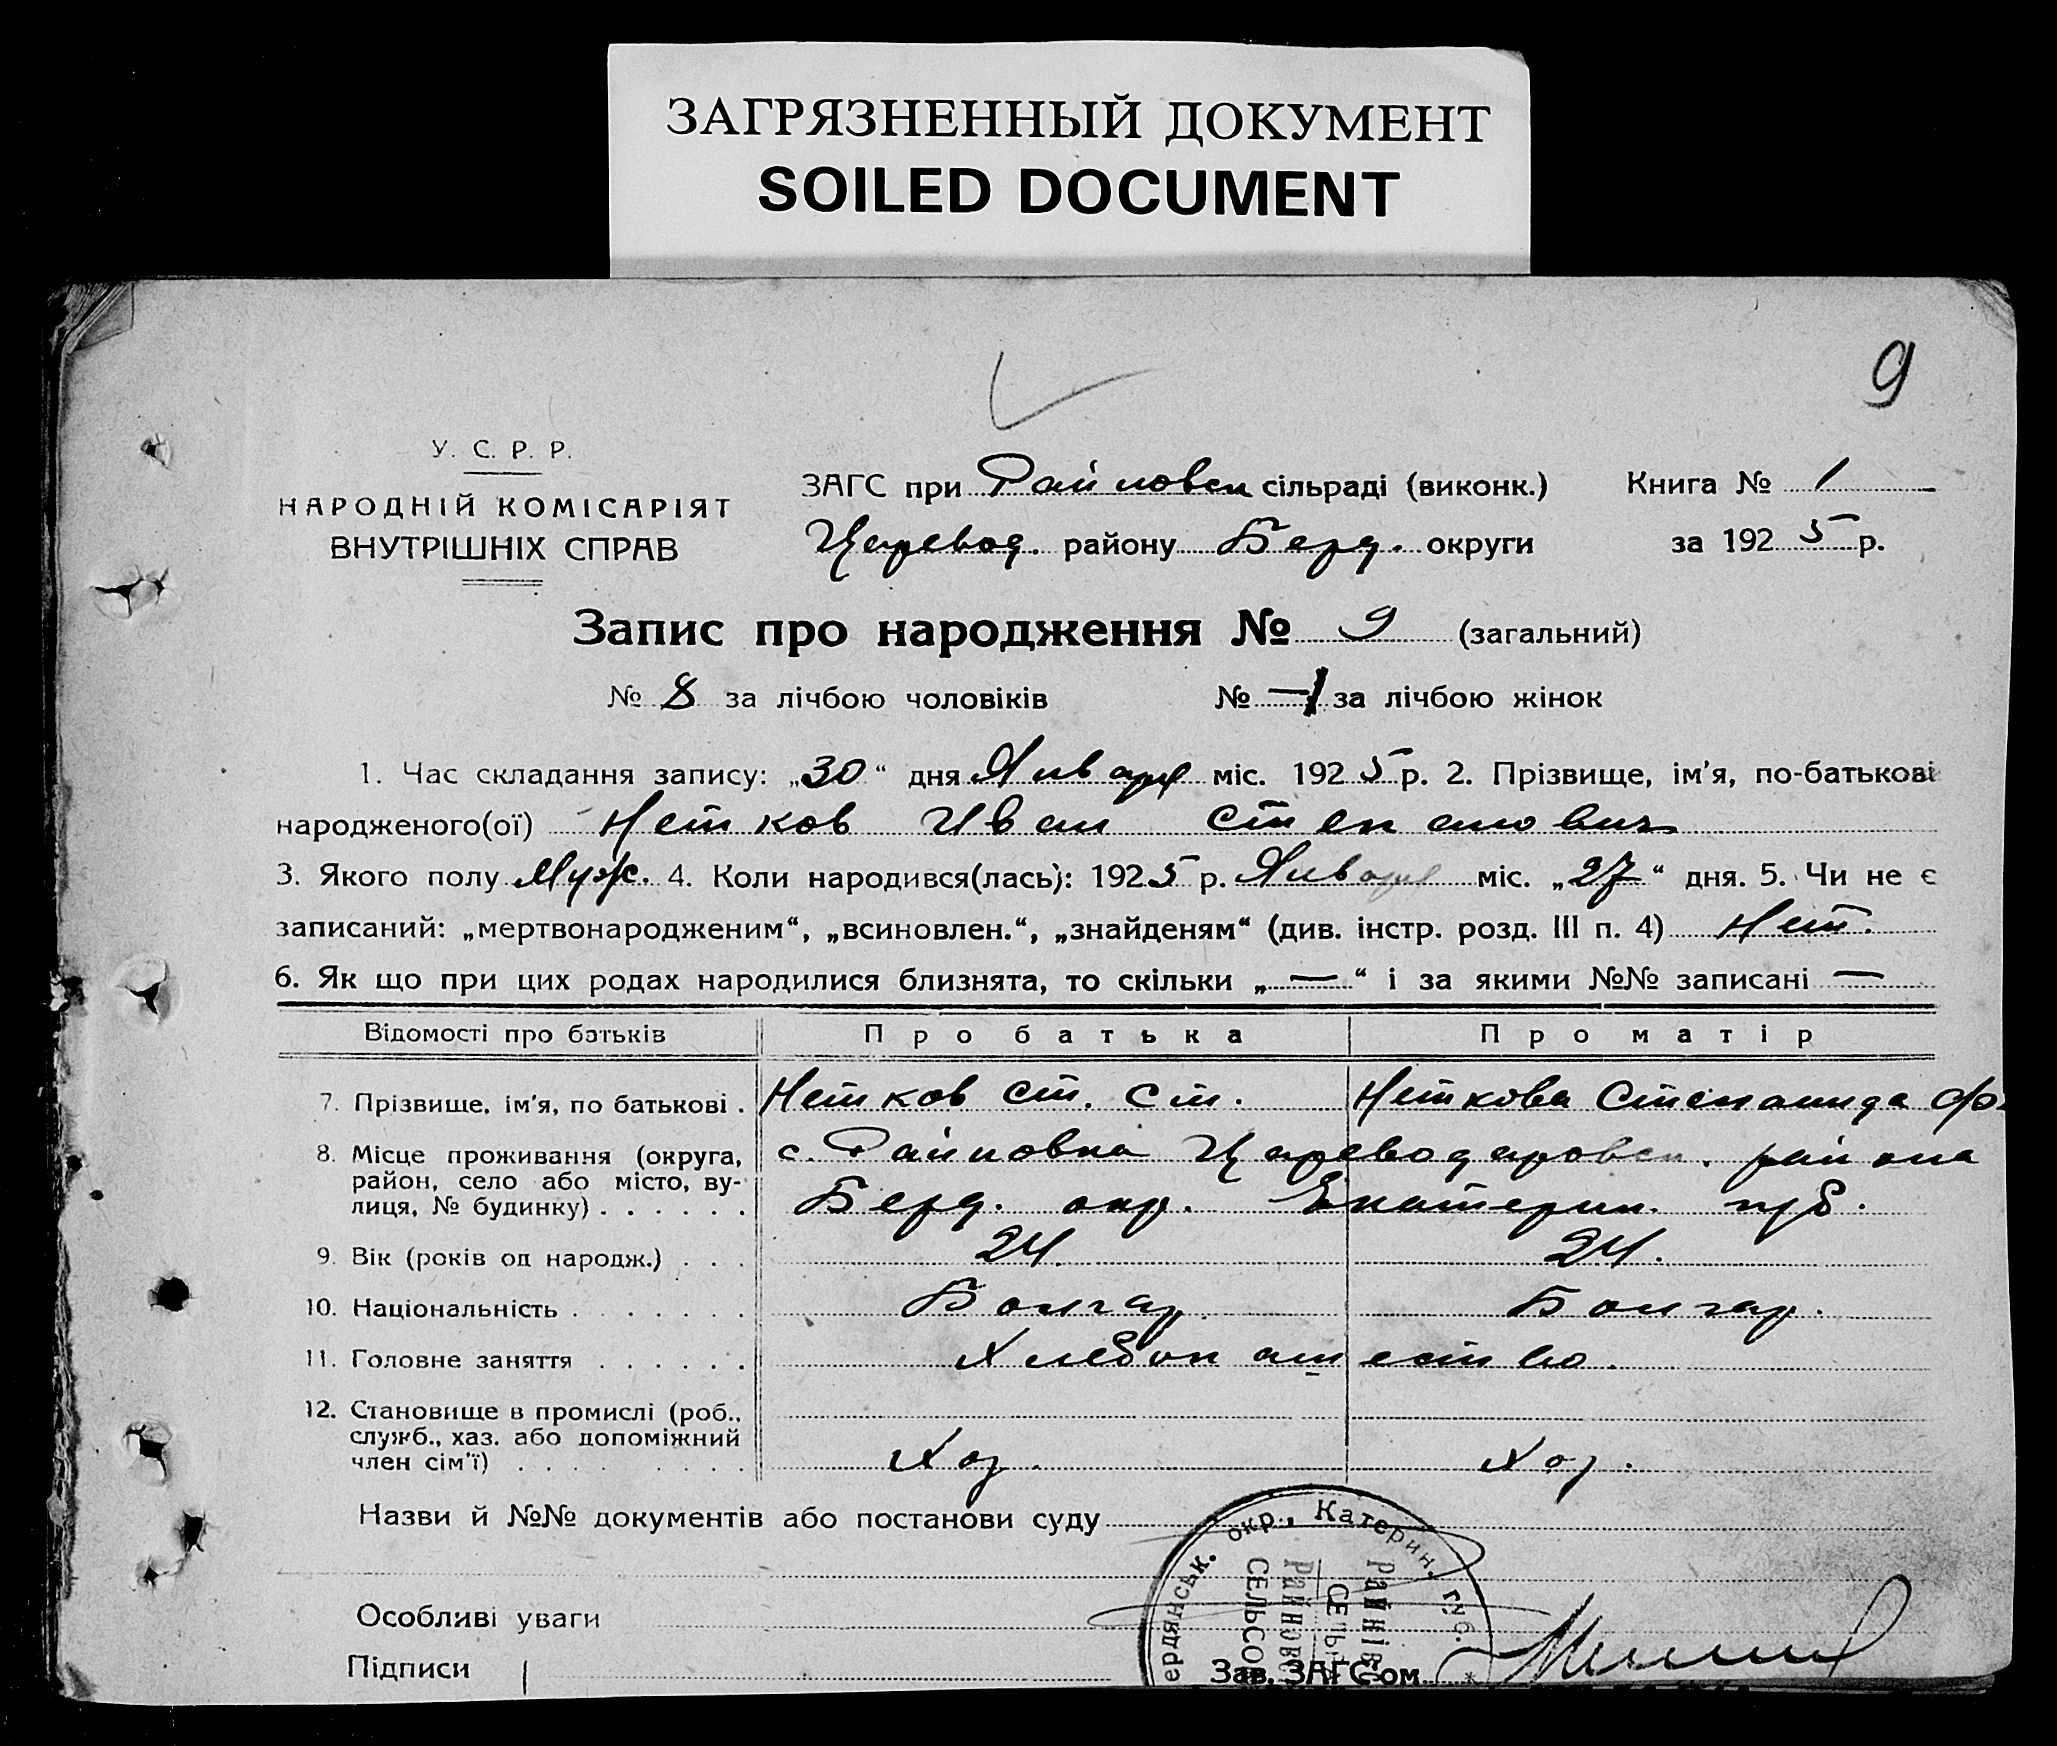 ЗАГРЯЗНЕННЫЙ ДОКУМЕНТ
SOILED DOCUMENT
9
У. С. Р. Р.
НАРОДНІЙ КОМІСАРІЯТ
ВНУТРІШНІХ СПРАВ
ЗАГС при Райновск сільраді (виконк.)
Царевод. району Берд. округи
Книга № 1
за 1925 р.
Запис про народження № 9 (загальний)
№ 8 за лічбою чоловіків № — за лічбою жінок
1. Час складання запису: „30“ дня Января міс. 1925 р. 2. Прізвище, ім'я, по-батькові
народженого(ої) Нетков Иван Степанович
3. Якого полу Муж. 4. Коли народився(лась): 1925 р. Января міс. „27“ дня. 5. Чи не є
записаний: „мертвонародженим“, „всиновлен.“, „знайденям“ (див. інстр. розд. III п. 4) Нет.
6. Як що при цих родах народилися близнята, то скільки „—“ і за якими №№ записані —
Відомості про батьків Про батька Про матір
7. Прізвище, ім'я, по батькові . Нетков Ст. Ст. Неткова Степанида Ф
8. Місце проживання (округа, район, село або місто, вулиця, № будинку) . . . . . . с. Райновка Цареводаровск. района
Берд. окр. Екатерин. губ.
9. Вік (років од народж.) . . . 24. 24.
10. Національність . . . . . . . Болгар. Болгар.
11. Головне заняття . . . . . . Хлебопашество.
12. Становище в промислі (роб., служб., хаз. або допоміжний член сім'ї) . . . . . . . . Хоз. Хоз.
Назви й №№ документів або постанови суду
Особливі уваги
Підписи
Зав. ЗАГС'ом
ердянськ. окр., Катерин. губ. *
РАЙНІВС
СЕЛЬР
РАЙНОВС
СЕЛЬСО